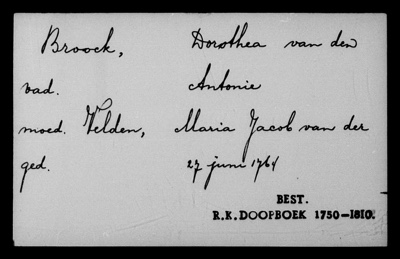 Broock, Dorothea van den
vad. Antonie
moed. Velden, Maria Jacob van der
ged. 27 juni 1764
BEST.
R.K. DOOPBOEK 1750-1810.